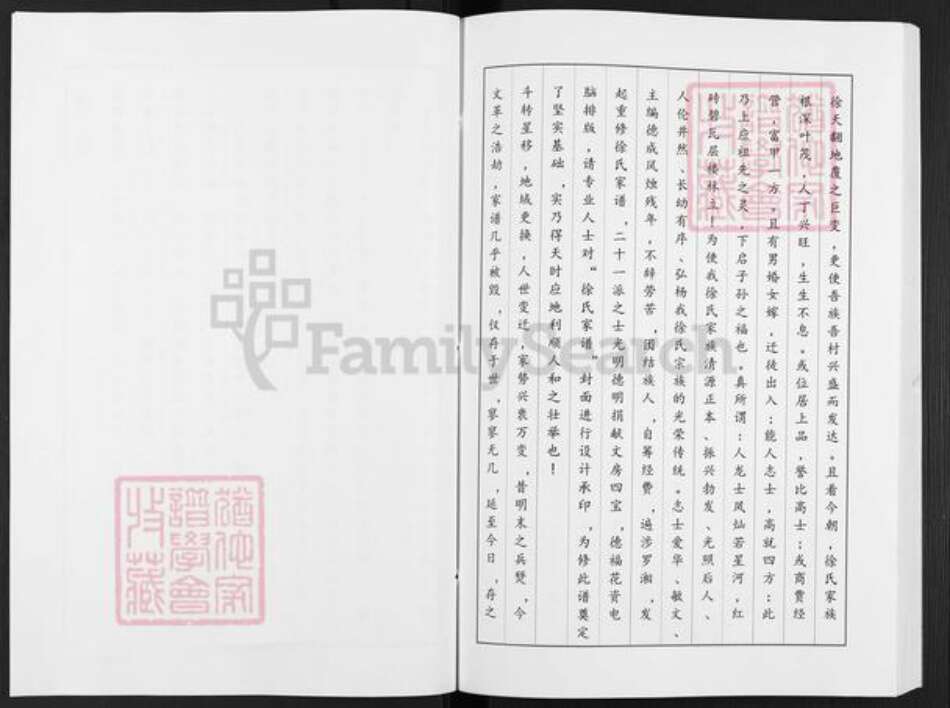 徐天翻地覆之巨变，更使吾族吾村兴盛而发达。且看今朝，徐氏家族
根深叶茂，人丁兴旺，生生不息。或位居上品，誉比高士；或商贾经
管，富甲一方。且有男婚女嫁，迁徒出入；能人志士，高就四方；此
乃上应祖先之灵，下启子孙之福也。真所谓：人龙士凤灿若星河，红
砖碧瓦层楼林立！为使我徐氏家族清源正本、振兴勃发、光照后人、
人伦井然、长幼有序、弘杨我徐氏宗族的光荣传统。志士爱华、敏文、
主编德成风烛残年，不辞劳苦，团结族人，自筹经费，遍涉罗湘，发
起重修徐氏家谱，二十一派之士光明德明捐献文房四宝，德福花资电
脑排版，请专业人士对“徐氏家谱”封面进行设计承印，为修此谱奠定
了坚实基础，实乃得天时应地利顺人和之壮举也！
斗转星移，地域更换，人世变迁，家势兴衰万变，昔明末之兵燹，今
文革之浩劫，家谱几乎被毁，仅存于世，寥寥无几，延至今日，存之
FamilySearch
猶他家
譜學會
收藏
猶他家
譜學會
收藏